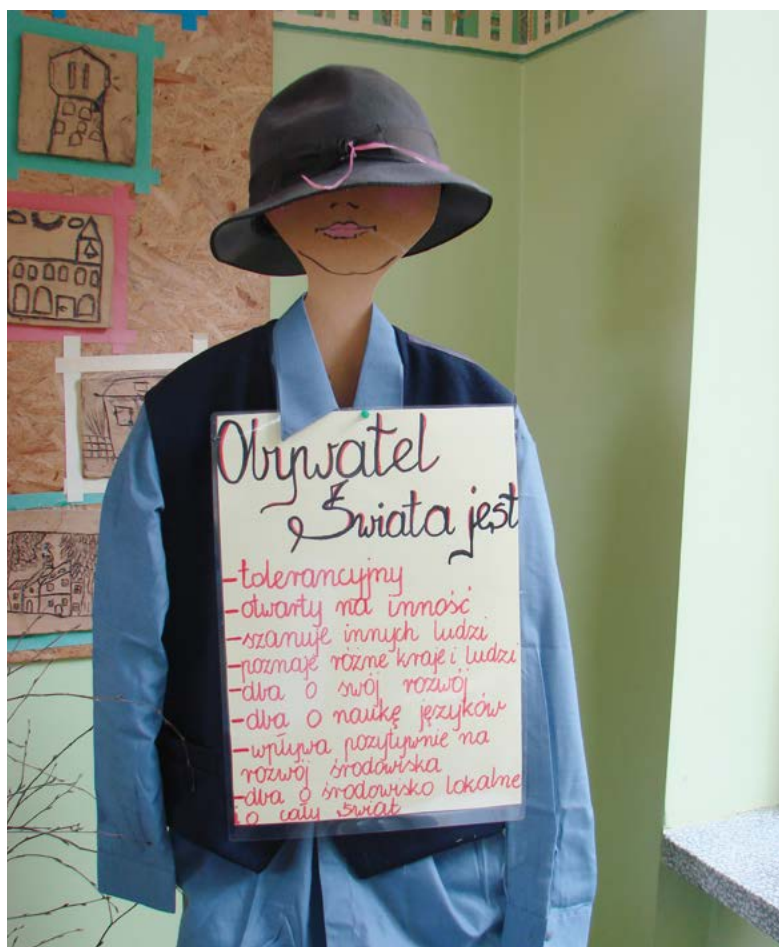 Obywatel
Świata jest
-tolerancyjny
-otwarty na inność
-szanuje innych ludzi
-poznaje różne kraje i ludzi
-dba o swój rozwój
-dba o naukę języków
-wpływa pozytywnie na
rozwój środowiska
-dba o środowisko lokalne
i o cały świat